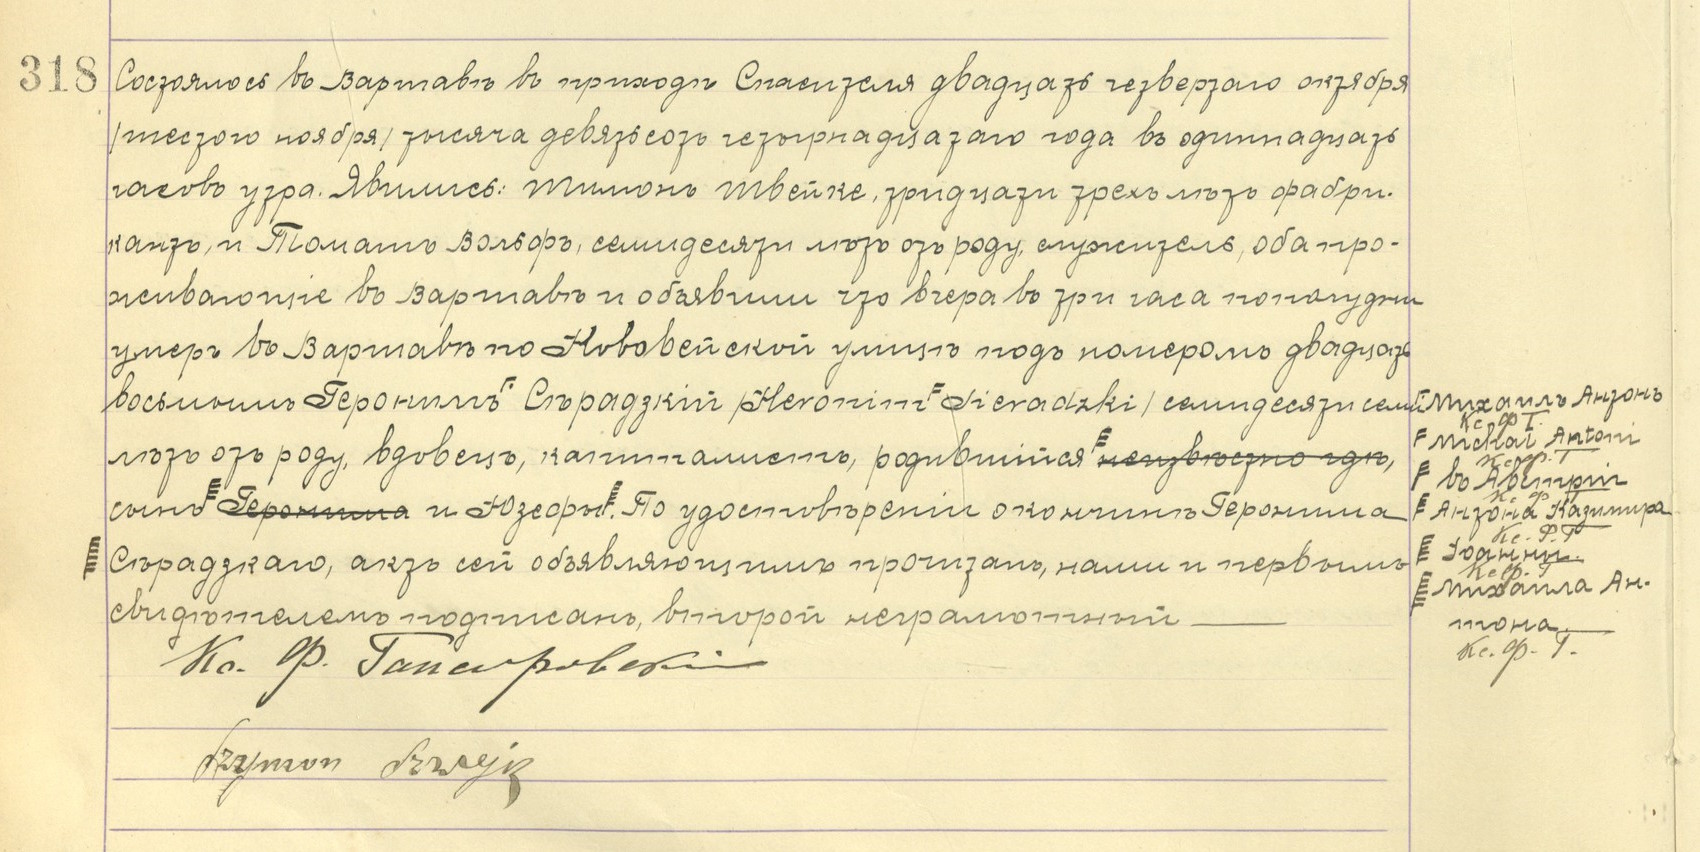 318
Состоялось въ Варшавѣ въ приходѣ Спасителя двадцать четвертаго октября
/шестого ноября/ тысяча девятьсотъ четырнадцатаго года въ одиннадцать
часовъ утра. Явились: Шимонъ Швейке, тридцати трехъ лѣтъ фабри-
кантъ, и Томашъ Вольфъ, семидесяти лѣтъ отъ роду, служитель, оба про-
живающіе въ Варшавѣ и объявили что вчера въ три часа пополудни
умеръ въ Варшавѣ по Нововейской улицѣ подъ номеромъ двадцать
восьмымъ Геронимъ Сѣрадзкій /Heronim Sieradzki/ семидесяти семи
лѣтъ отъ роду, вдовецъ, капиталистъ, родившійся неизвѣстно гдѣ,
сынъ Геронима и Юзефы. По удостовѣреніи о кончинѣ Геронима
Сѣрадзкаго, актъ сей объявляющимъ прочитанъ, нами и первымъ
свидѣтелемъ подписанъ, второй неграмотный
Кс. Ф. Гонсіоровскій
Szymon Szwejk
Михаилъ Антонъ
Кс. Ф. Г.
Michał Antoni
Кс. Ф. Г.
въ Австріи
Кс. Ф. Г.
Антона Казимира
Кс. Ф. Г.
Іоанны
Кс. Ф. Г.
Михаила Ан-
тона
Кс. Ф. Г.